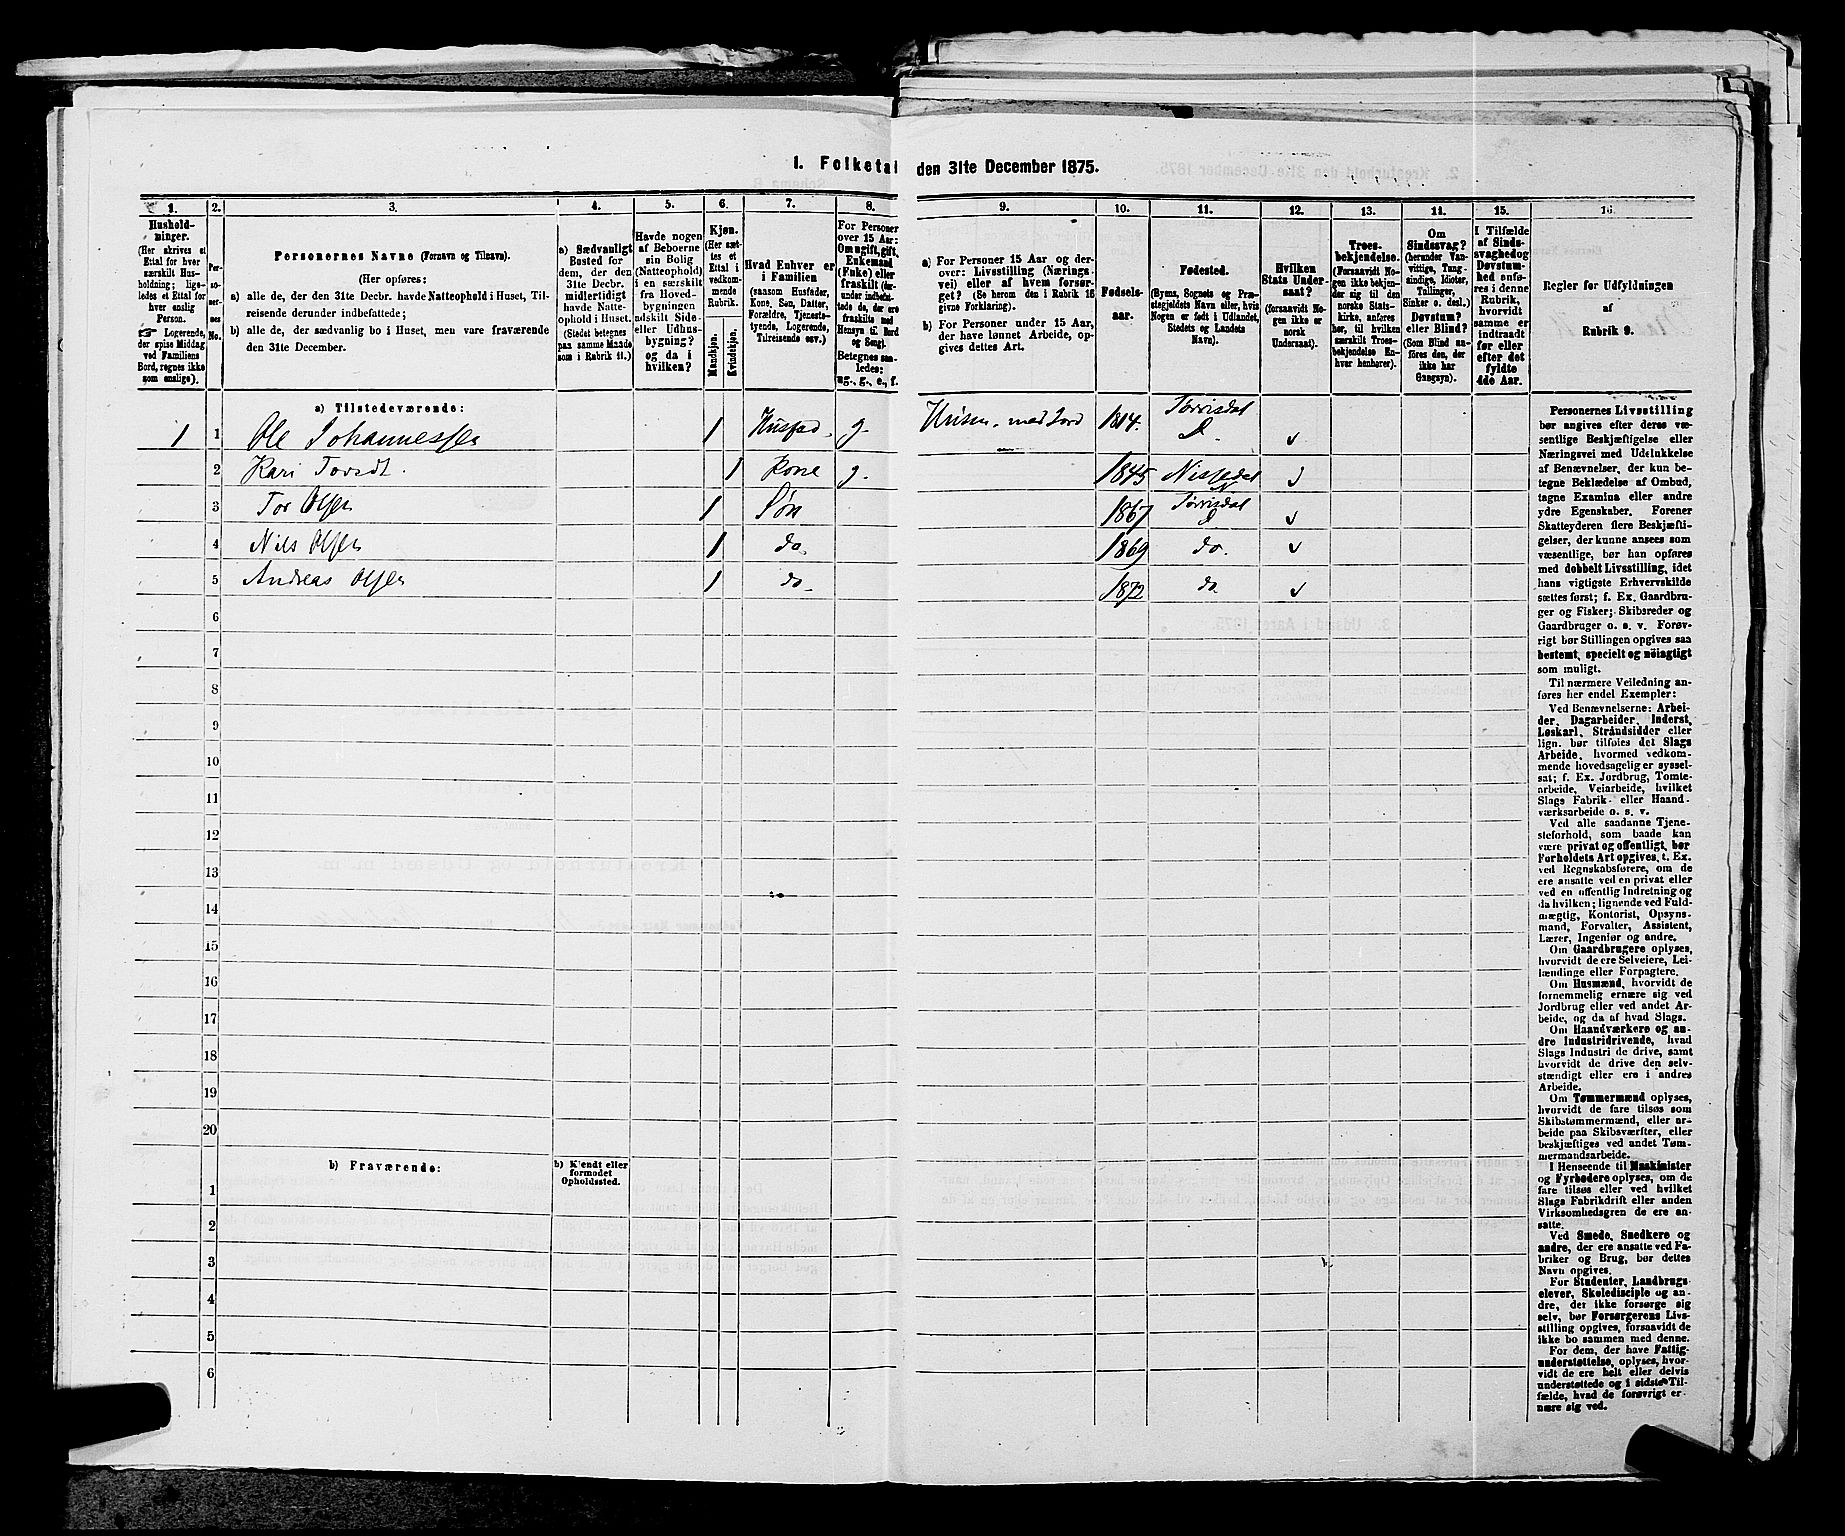 1. Folketal den 31te December 1875.
1. 2. 3. 4. 5. 6. 7. 8. 9. 10. 11. 12. 13. 14. 15. 16.
Hushold-
ninger.
(Her skrives et
Ettal for hver
særskilt Hus-
holdning; lige-
ledes et Ettal for
hver enslig
Person.
☞ Logerende,
der spise Middag
ved Familiens
Bord, regnes ikke
som enslige).
Per-
so-
ner-
nes
No.
Personernes Navne (Fornavn og Tilnavn).
(Her opføres:
a) alle de, der den 31te Decbr. havde Natteophold i Huset, Til-
reisende derunder indbefattede;
b) alle de, der sædvanlig bo i Huset, men vare fraværende
den 31te December.
a) Sædvanligt
Bosted for
dem, der den
31te Decbr.
midlertidigt
havde Natte-
ophold i Huset.
(Stedet betegnes
paa samme Maade
som i Rubrik 11.)
Havde nogen
af Beboerne
sin Bolig
(Natteophold)
i en særskilt
fra Hoved-
bygningen
adskilt Side-
eller Udhus-
bygning?
og da i
hvilken?
Kjøn.
(Her sæt-
tes et
Ettal i
vedkom-
mende
Rubrik.
Mandkjøn.
Kvindekjøn.
Hvad Enhver er
i Familien
(saasom Husfader,
Kone, Søn, Datter,
Forældre, Tjeneste-
tyende, Logerende,
Tilreisende osv.)
For Personer
over 15 Aar:
Om ugift, gift,
Enkemand
(Enke) eller
fraskilt (der-
under indbefat-
tede de, der ere
fraskilte med
Hensyn til Bord
og Seng).
Betegnes saa-
ledes:
ug., g., e., f.
a) For Personer 15 Aar og der-
over: Livsstilling (Nærings-
vei) eller af hvem forsør-
get? (Se herom den i Rubrik 16
givne Forklaring).
b) For Personer under 15 Aar,
der have lønnet Arbeide, op-
gives dettes Art.
Fødsels-
aar.
Fødested.
(Byens, Sognets og Præ-
stegjeldets Navn eller, hvis
Nogen er født i Udlandet,
Stedets og Landets
Navn).
Hvilken
Stats Under-
saat?
(forsaavidt No-
gen ikke er
norsk
Undersaat).
Troes-
bekjendelse.
(Forsaavidt No-
gen ikke bekjen-
der sig til den
norske Stats-
kirke, anføres
her, til hvilken
særskilt Troes-
bekjendelse En-
hver henhører).
Om
Sindssvag?
(herunder Van-
vittige, Tung-
sindige, Idioter,
Tullinger,
Sinker o. desl.)
Døvstum?
eller Blind?
(Som Blind an-
føres den, der
ikke har
Gangsyn).
I Tilfælde
af Sinds-
svaghed og
Døvstum-
hed anfø-
res i denne
Rubrik,
hvorvidt
samme er
indtraadt
før eller
efter det
fyldte
4de Aar.
Regler for Udfyldningen
af
Rubrik 9.
a) Tilstedeværende:
1 1 Ole Johannessen 1 Husfad. g. Husm. med Jord 1814. Tørrisdal D.
2 Kari Torsdt. 1 Kone g. 1845 Nissedal N
3 Tor Olsen 1 Søn 1867 Tørrisdal D
4 Nils Olsen 1 do 1869 do.
5 Andreas Olsen 1 do 1872 do
6
7
8
9
10
11
12
13
14
15
16
17
18
19
20
b) Fraværende:
b) Kjendt eller
formodet
Opholdssted.
1
2
3
4
5
6
Personernes Livsstilling
bør angives efter deres væ-
sentlige Beskjæftigelse eller
Næringsvei med Udelukkelse
af Benævnelser, der kun be-
tegne Beklædelse af Ombud,
tagne Examina eller andre
ydre Egenskaber. Forener
Skatteyderen flere Beskjæfti-
gelser, der kunne ansees som
væsentlige, bør han opføres
med dobbelt Livsstilling, idet
hans vigtigste Erhvervskilde
sættes først; f. Ex. Gaardbru-
ger og Fisker; Skibsreder og
Gaardbruger o. s. v. Forøv-
rigt bør Stillingen opgives saa
bestemt, specielt og nøiagtigt
som muligt.
Til nærmere Veiledning an-
føres her endel Exempler:
Ved Benævnelserne: Arbei-
der, Dagarbeider, Inderst,
Løskarl, Strandsidder eller
lign. bør tilføies det Slags
Arbeide, hvormed vedkom-
mende hovedsagelig er syssel-
sat; f. Ex. Jordbrug, Tomte-
arbeide, Veiarbeide, hvilket
Slags Fabrik- eller Haand-
værksarbeide o. s. v.
Ved alle saadanne Tjene-
steforhold, som baade kan
være privat og offentligt, bør
Forholdets Art opgives, t. Ex.
ved Regnskabsførere, om de
ere ansatte ved en privat eller
ved en offentlig Indretning og
da hvilken; lignende ved Fuld-
mægtig, Kontorist, Opsyns-
mand, Forvalter, Assistent,
Lærer, Ingeniør og andre.
Om Gaardbrugere oplyses,
hvorvidt de ere Selveiere, Lei-
lændinge eller Forpagtere.
Om Husmænd, hvorvidt de
fornemmelig ernære sig ved
Jordbrug eller ved andet Ar-
beide, og da af hvad Slags.
Om Haandværkere og an-
dre Industridrivende, hvad
Slags Industri de drive, samt
hvorvidt de drive den selv-
stændigt eller ere i andres
Arbeide.
Om Tømmermænd oplyses,
hvorvidt de fare tilsøs som
Skibstømmermænd, eller ar-
beide paa Skibsværfter, eller
beskjæftiges ved andet Tøm-
mermandsarbeide.
I Henseende til Maskinister
og Fyrbødere oplyses, om de
fare tilsøs eller ved hvilket
Slags Fabrikdrift eller anden
Virksomhedsgren de ere an-
satte.
Ved Smede, Snedkere og
andre, der ere ansatte ved Fa-
briker og Brug, bør dettes
Navn opgives.
For Studenter, Landbrugs-
elever, Skoledisciple og an-
dre, der ikke forsørge sig
selv, bør Forsørgerens Livs-
stilling opgives, forsaavidt de
ikke bo sammen med denne.
For dem, der have Fattig-
understøttelse, oplyses, hvor-
vidt de ere helt eller delvis
understøttede og i sidste Til-
fælde, hvad de forøvrigt er-
nære sig ved.